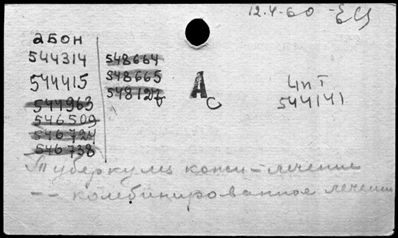 12.4.60 -ЕЦ
абон
544314
544415
544963
546509
546724
546738
548664
548665
548127
АС
чпТ
544141
Туберкулез кожи - лечение
-- комбинированное лечение